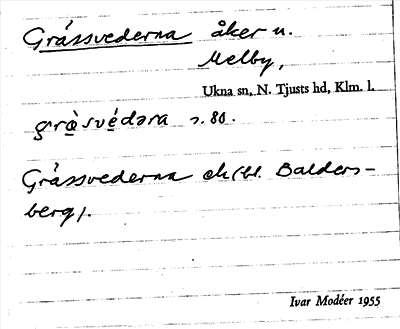 Grássvederna åker u.
Melby,
Ukna sn, N. Tjusts hd, Klm. l.
grà̱své̱dəra 7.80.
Grássvederna ek(bl. Balders-
berg).
Ivar Modéer 1955